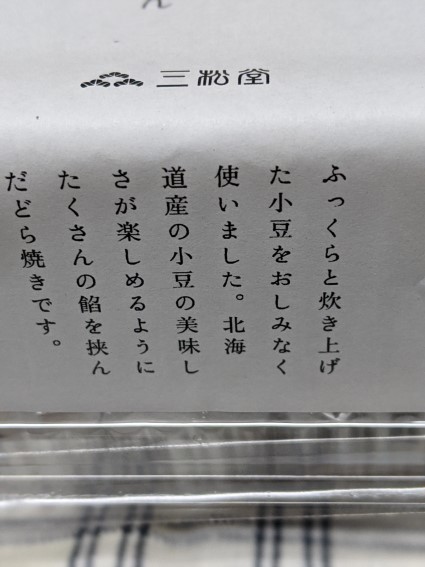 ん
三松堂
ふっくらと炊き上げ
た小豆をおしみなく
使いました。北海
道産の小豆の美味し
さが楽しめるように
たくさんの餡を挟ん
だどら焼きです。